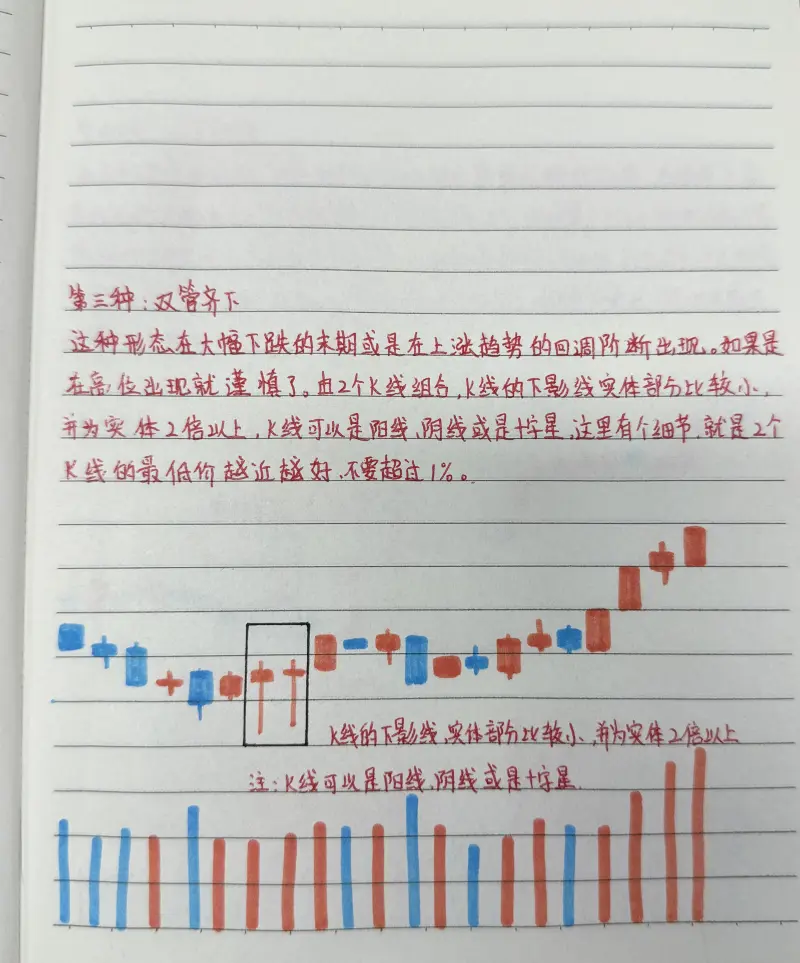 第三种：双管齐下
这种形态在大幅下跌的末期或是在上涨趋势的回调阶断出现。如果是
在高位出现就谨慎了。由2个K线组合，K线的下影线实体部分比较小，
并为实体2倍以上，K线可以是阳线、阴线或是十字星，这里有个细节，就是2个
K线的最低价越近越好、不要超过1%。
K线的下影线，实体部分比较小，并为实体2倍以上
注：K线可以是阳线、阴线或是十字星.